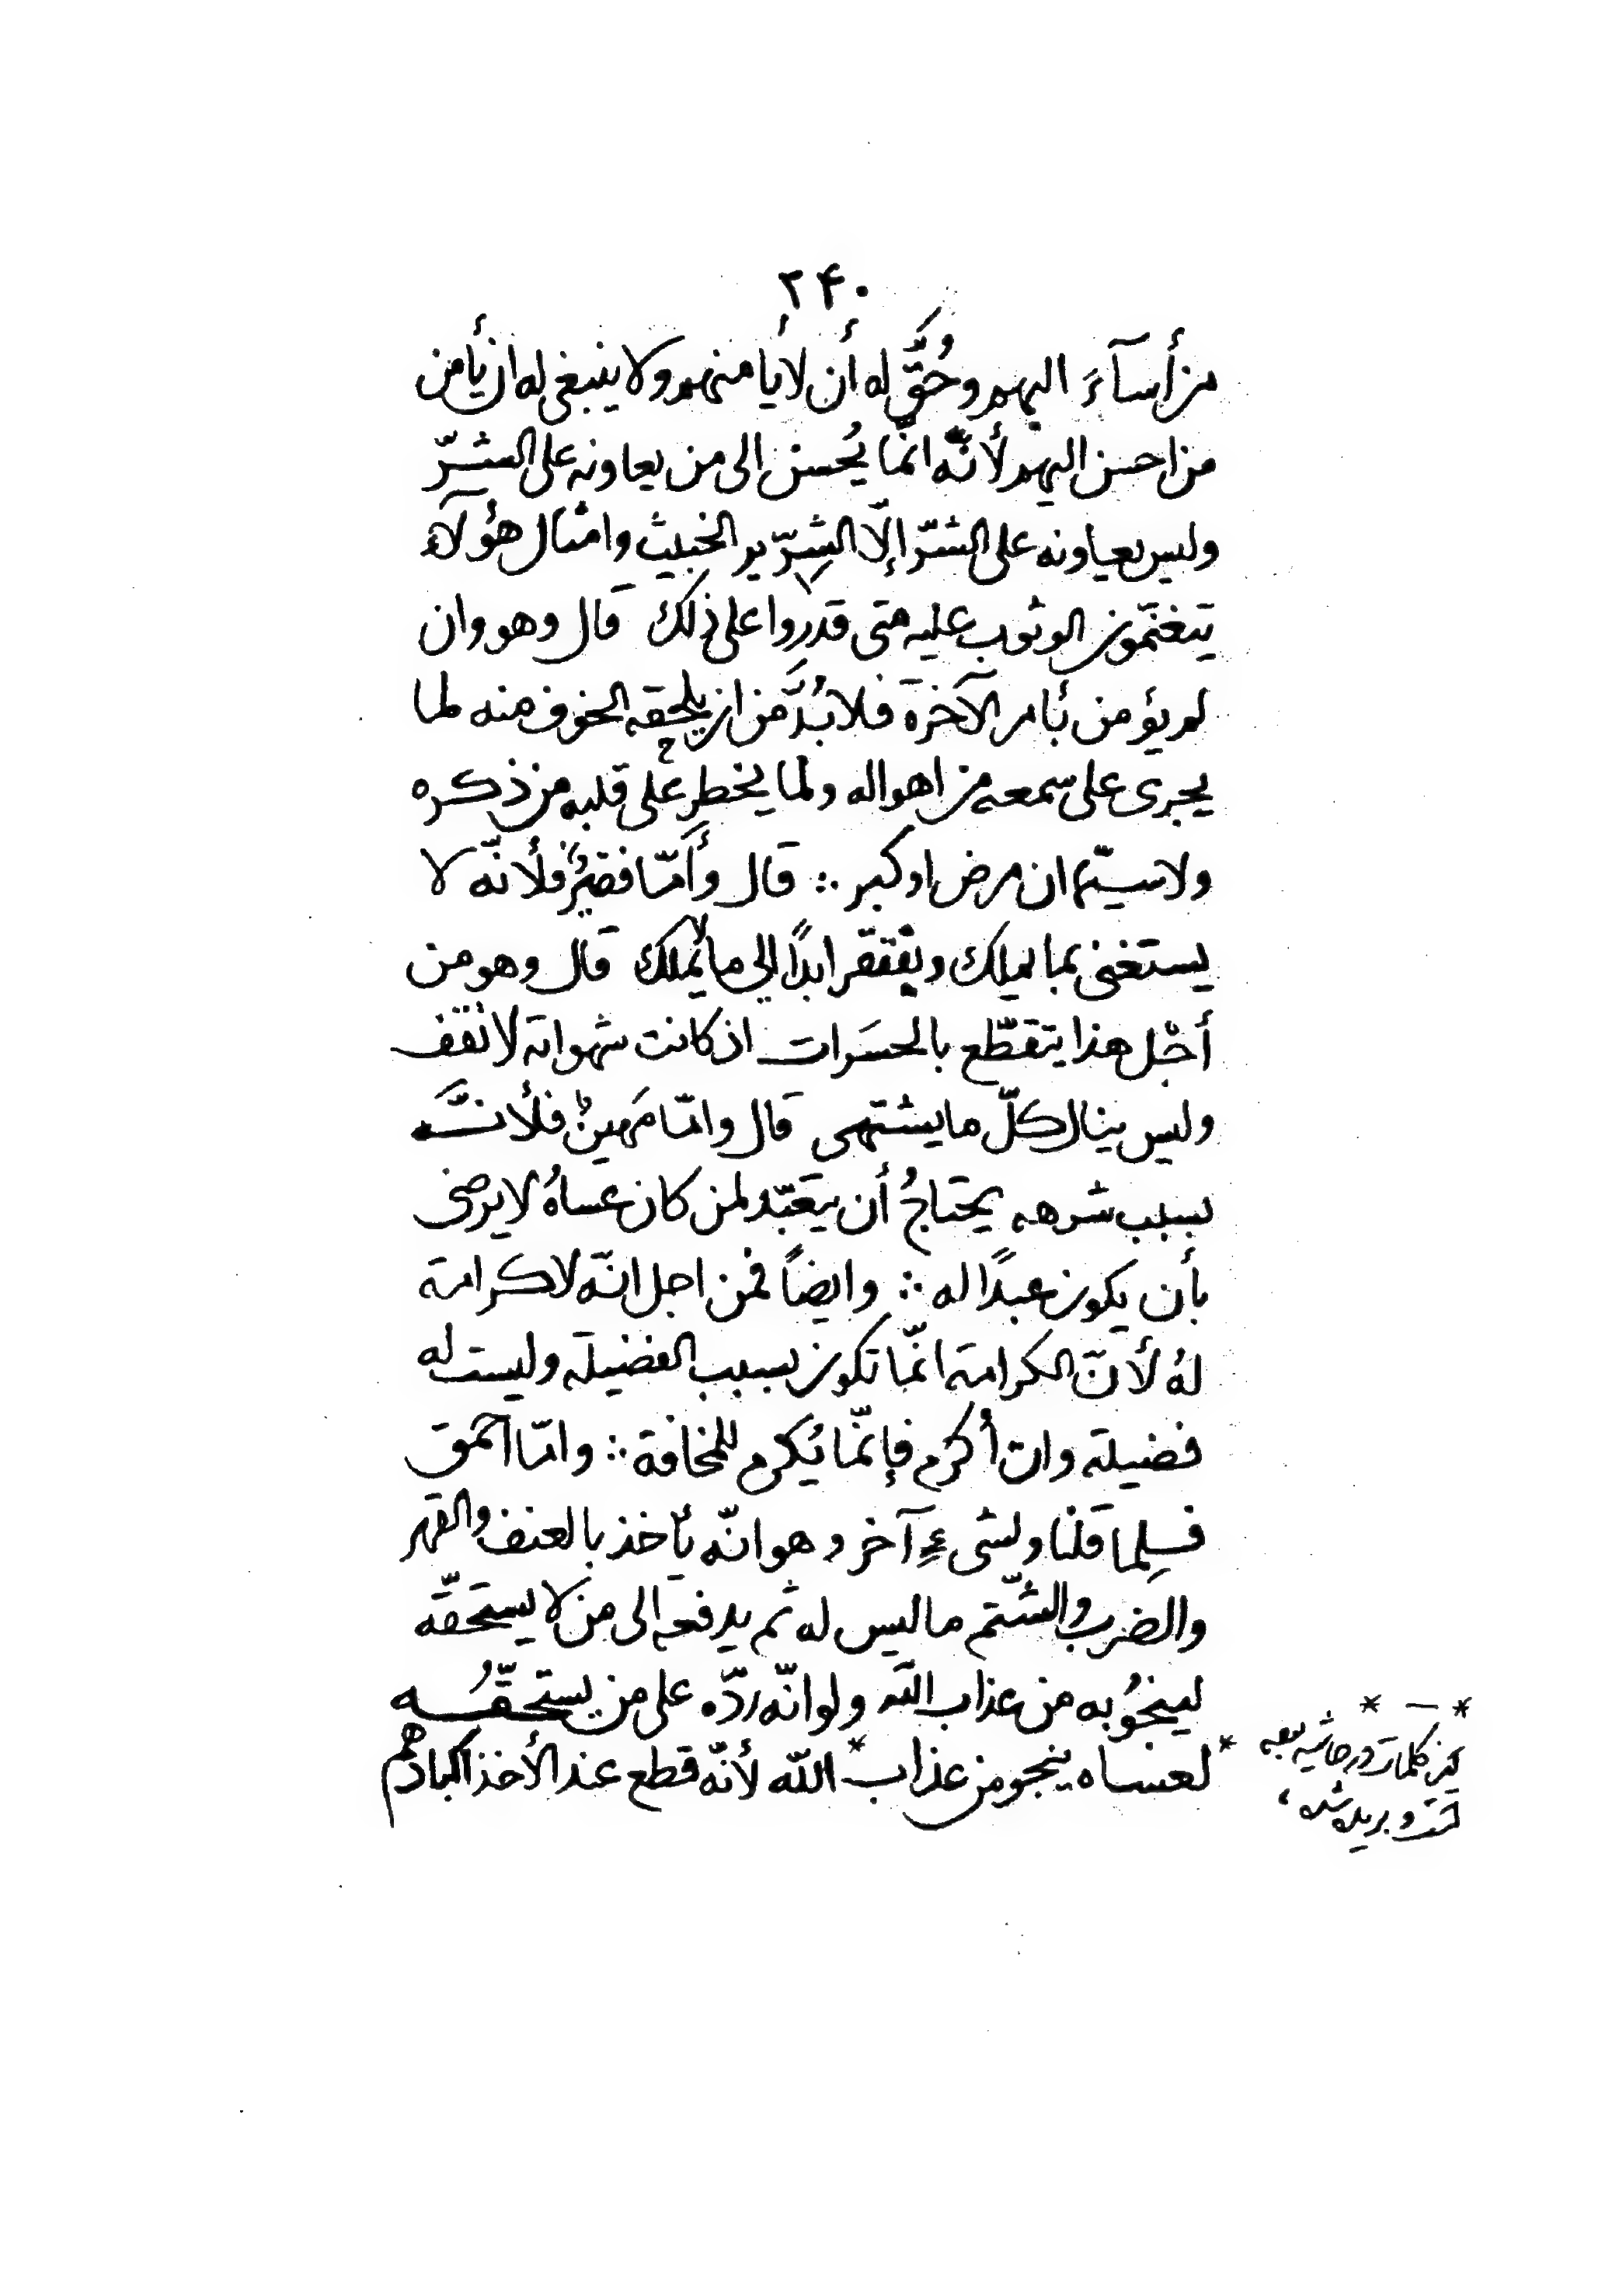 ۲۴۰
من أسآءَ اليهم وحُقَّ له أن لا يأمنهم ولا ينبغى له ان يأمن
من احسن اليهم لأنّه انّما يُحسن الى من يعاونه على الشرّ
وليس يعاونه على الشرّ إلّا الشِرّير الخبيث وامثال هؤلآء
يتغنّمون الوثوب عليه متى قدروا على ذلك قال وهو وان
لم يؤمن بأمر الآخرة فلا بُدَّ من ان يلحقه الخوف منه لما
يجرى على سمعه من اهواله ولما يخطر على قلبه من ذكره
ولا سيّما ان مرض او كبر ∴ قال وأمّا فقيرٌ فلأنّه لا
يستغنى بما يملك ويفتقر ابدًا إلى ما لا يملك قال وهو من
أجْل هذا يتقطّع بالحسَرات اذ كانت شهواته لا تقف
وليس ينال كلّ ما يشتهى قال وامّا مَهينٌ فلأنَّه
بسبب شرهه يحتاجُ أن يتعَبّد لمن كان عساهُ لا يرضى
بأن يكون عبدًا له ∴ وايضاً فمن اجل انّه لا كرامة
لهُ لأنّ الكرامة انّما تكون بسبب الفضيلة وليست له
فضيلة وان أكرم فإنّما يُكرم للمخافة ∴ وامّا أحمق
فلِما قلنا ولشىءٍ آخر وهو انّه يأخذ بالعنف والقهر
والضرب والشّتم ما ليس له ثم يدفعه الى من لا يستحقّه
لينجُو به من عذاب الله ولو انّه ردّه على من يستحقّه
* لعساه ينجو من عذاب * الله لأنّه قطع عند الأخذ اكبادهم
* — *
اين كلمات در حاشيه بقيه
است و بريده شده ،